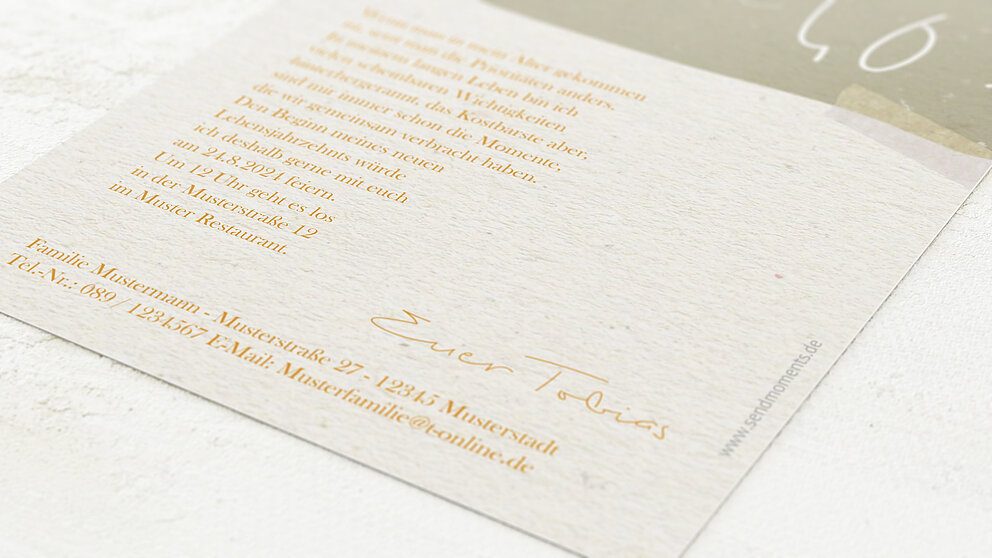 Wenn man in mein Alter gekommen
ist, setzt man die Prioritäten anders.
In meinem langen Leben bin ich
vielen scheinbaren Wichtigkeiten
hinterhergerannt, das Kostbarste aber,
sind mir immer schon die Momente,
die wir gemeinsam verbracht haben.
Den Beginn meines neuen
Lebensjahrzehnts würde
ich deshalb gerne mit euch
am 24.8.2021 feiern.
Um 12 Uhr geht es los
in der Musterstraße 12
im Muster Restaurant.
Euer Tobias
Familie Mustermann - Musterstraße 27 - 12345 Musterstadt
Tel.-Nr.: 089 / 1234567 E-Mail: Musterfamilie@t-online.de
www.sendmoments.de